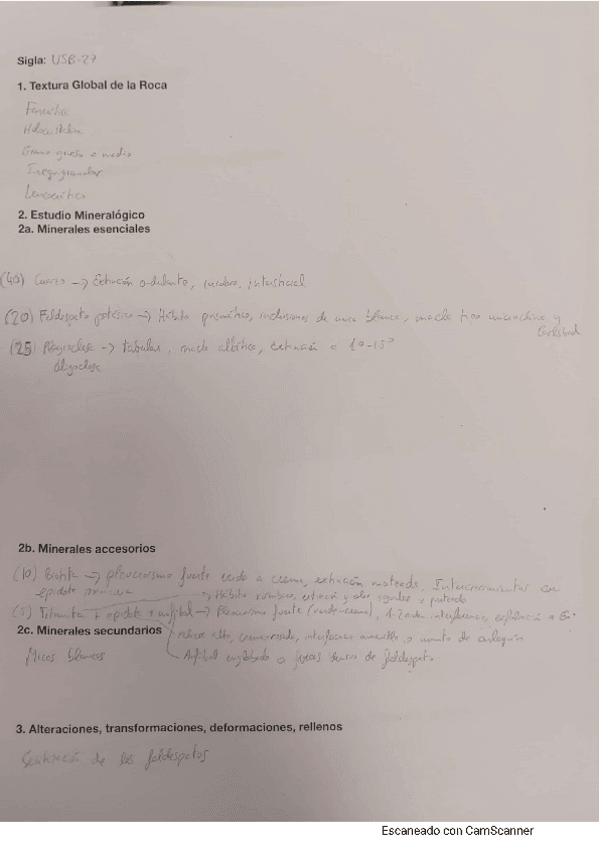 Sigla: USB-27
1. Textura Global de la Roca
Fanerítica
Holocristalina
Grano grueso a medio
Inequigranular
Leucocrático
2. Estudio Mineralógico
2a. Minerales esenciales
(40) Cuarzo → Extinción ondulante, incoloro, intersticial
(20) Feldespato potásico → Hábito prismático, inclusiones de mica blanca, macla tipo microclina y
Carlsbad
(25) Plagioclasa → tabular, macla albítica, extinción a 10-15°
Oligoclasa
2b. Minerales accesorios
(10) Biotita → pleocroismo fuerte verde a crema, extinción moteada, Intercrecimientos con
epidota primaria → Hábito rómbico, extinción y
(5) Titanita + epidota + anfíbol → Pleocroismo fuerte (verde-crema), interferencia, exfoliación a
2c. Minerales secundarios
relieve alto, interferencia amarillo a manto de arlequín
Micas blancas
Anfíbol englobado a feldespato
3. Alteraciones, transformaciones, deformaciones, rellenos
Sericitización de los feldespatos
Escaneado con CamScanner